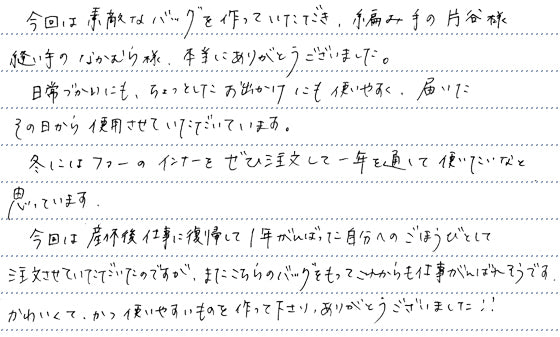 今回は素敵なバッグを作っていただき、編み手の片谷様
縫い手のなかむら様、本当にありがとうございました。
日常づかいにも、ちょっとしたお出かけにも使いやすく、届いた
その日から使用させていただいています。
冬にはファーのインナーをぜひ注文して一年を通して使いたいなと
思っています.
今回は産休後仕事に復帰して1年がんばった自分へのごほうびとして
注文させていただいたのですが、またこちらのバッグをもってこれからも仕事がんばれそうです.
かわいくて、かつ使いやすいものを作って下さり、ありがとうございました!!